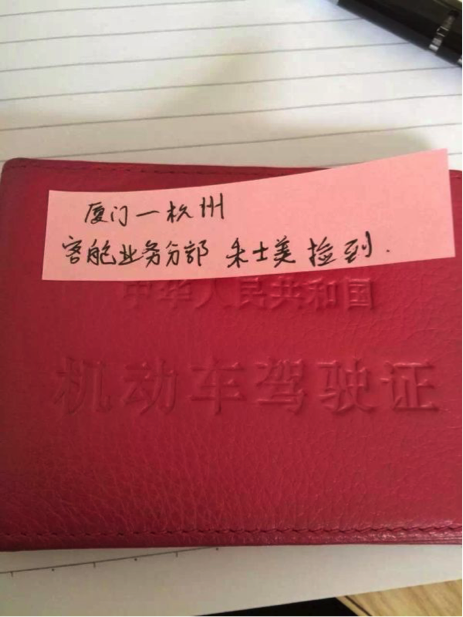 厦门一杭州
客舱业务分部 朱士美 捡到.
中华人民共和国
机动车驾驶证